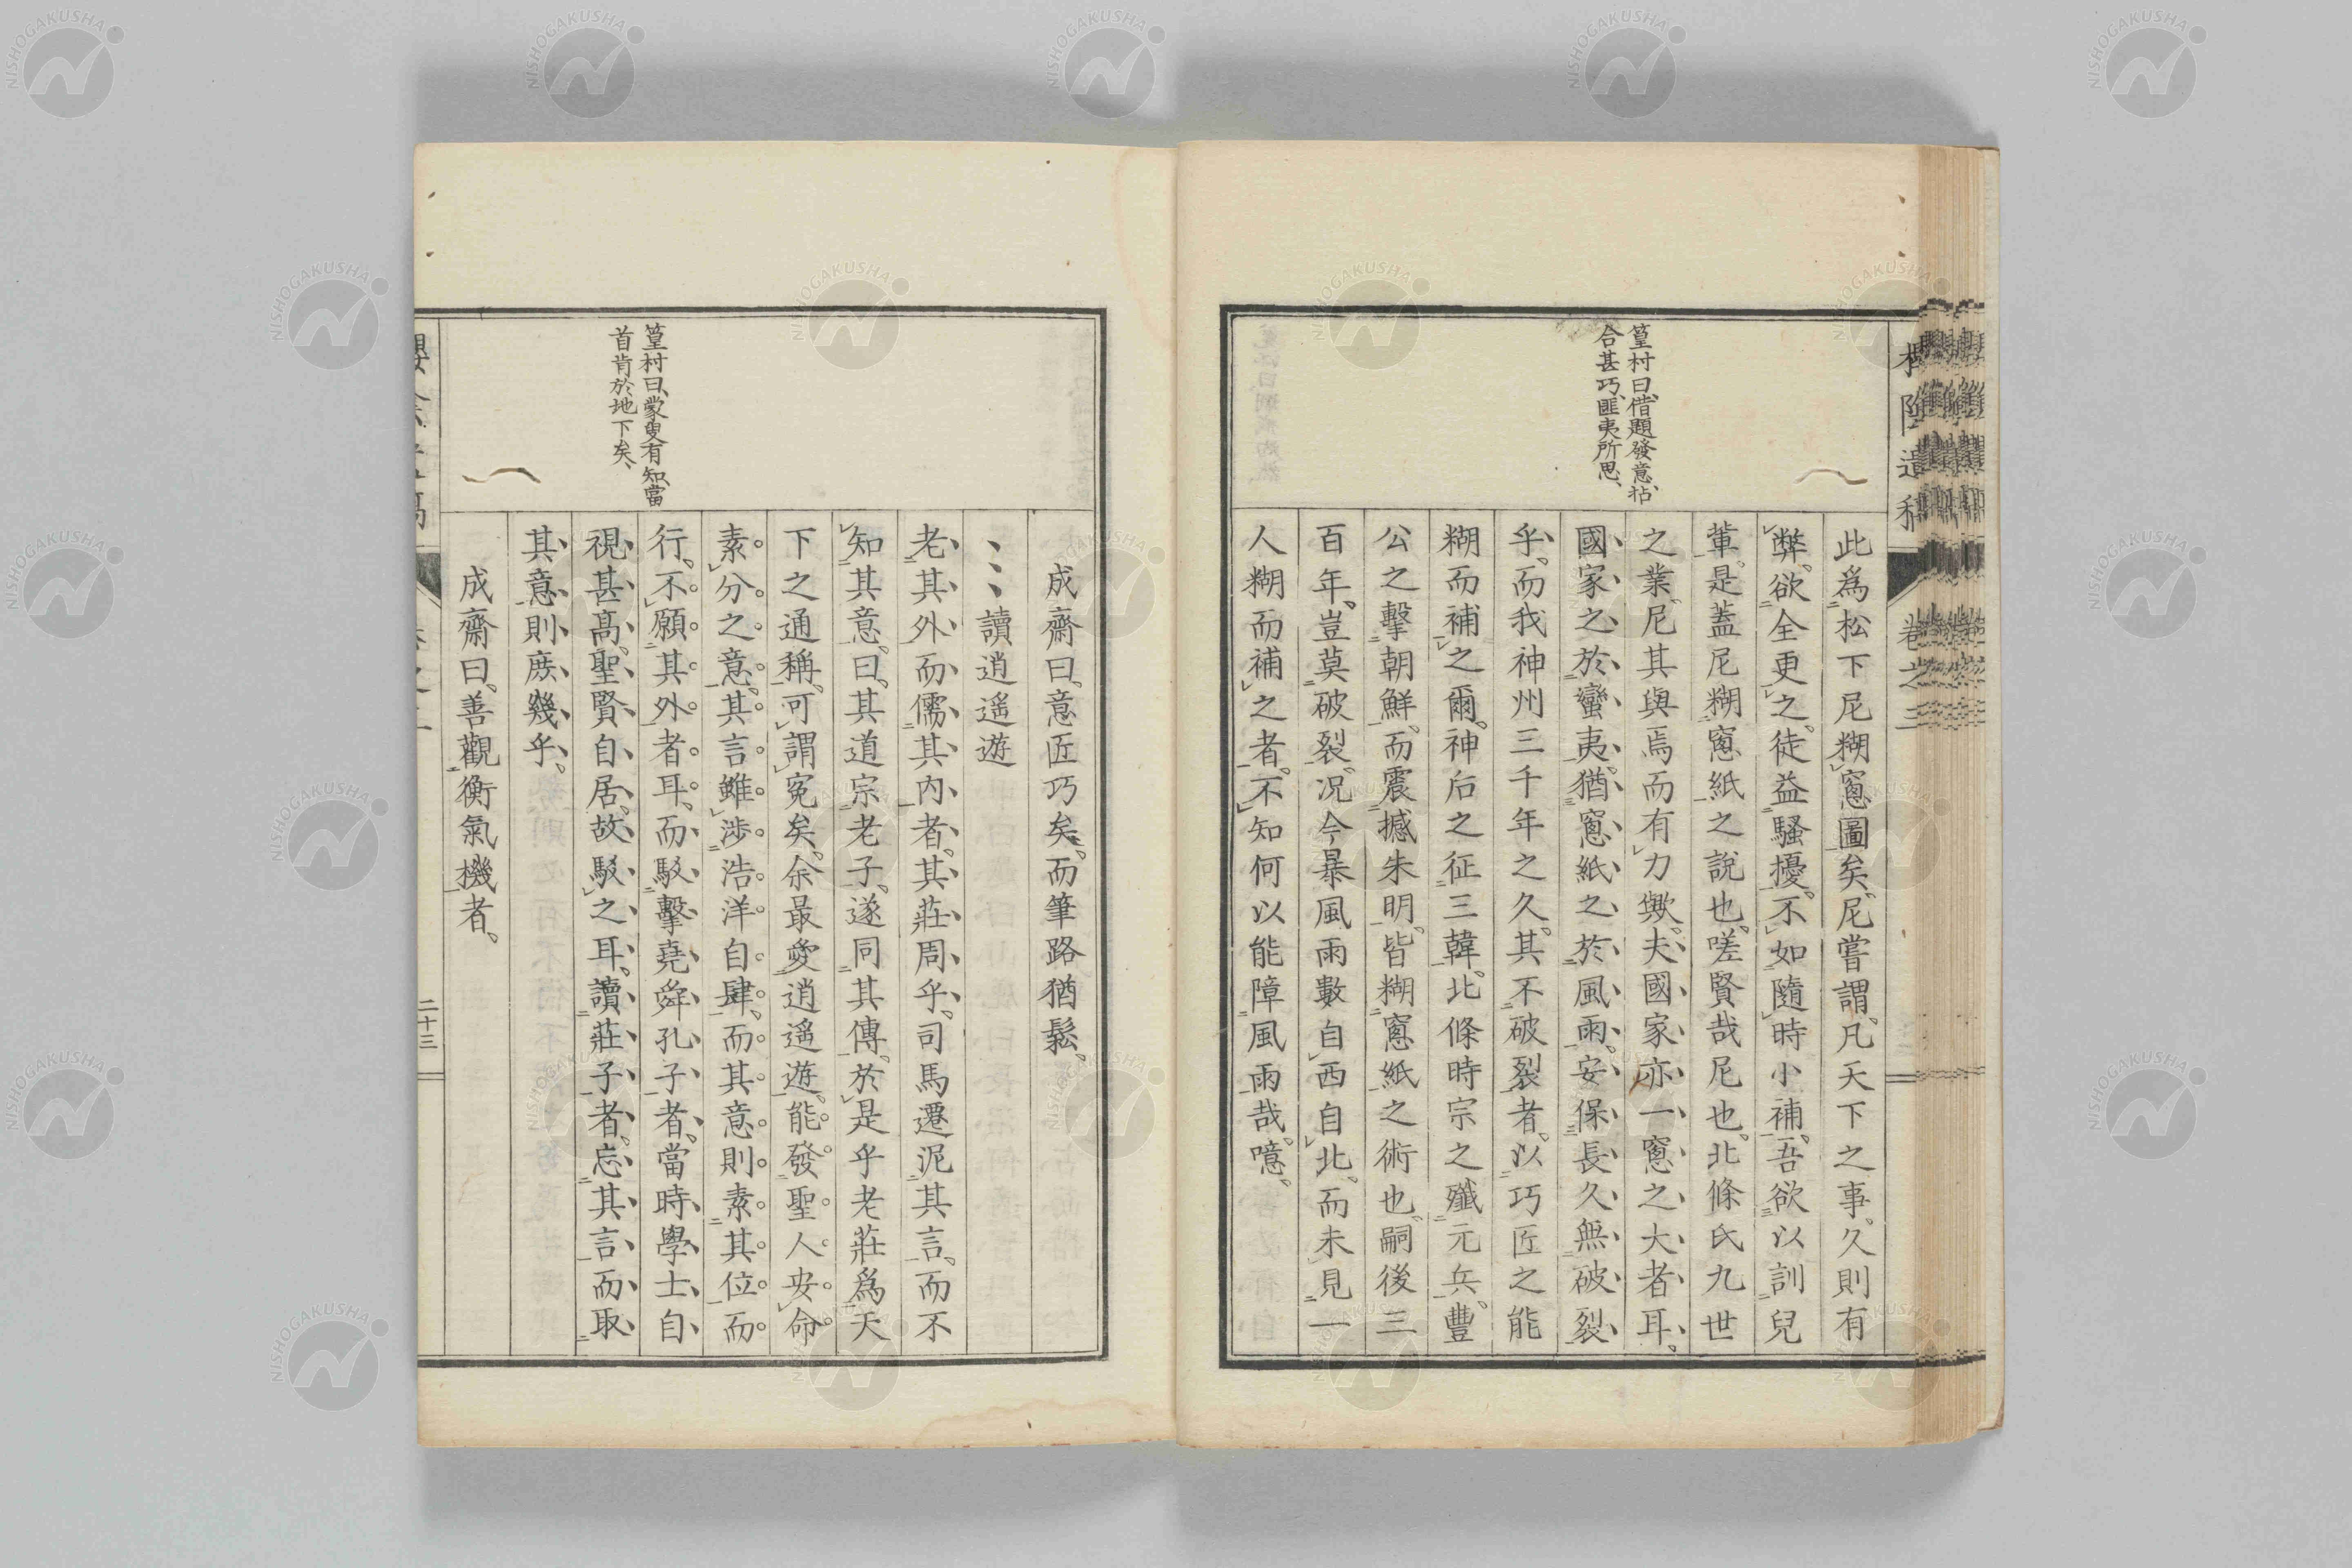 篁村曰、借題發意、拈
合甚巧、匪夷所思、
此爲松下尼糊窻圖矣、尼嘗謂、凡天下之事、久則有
弊、欲全更之、徒益騷擾、不如隨時小補、吾欲以訓兒
輩、是蓋尼糊窻紙之說也、嗟賢哉尼也、北條氏九世
之業、尼其與焉而有力歟、夫國家亦一窻之大者耳、
國家之於蠻夷、猶窻紙之於風雨、安保長久無破裂
乎、而我神州三千年之久、其不破裂者、以巧匠之能
糊而補之爾、神后之征三韓、北條時宗之殲元兵、豐
公之擊朝鮮、而震撼朱明、皆糊窻紙之術也、嗣後三
百年、豈莫破裂、况今暴風雨數自西自北、而未見一
人糊而補之者、不知何以能障風雨哉、噫、
卷之三
NISHOGAKUSHA
篁村曰、蒙叟有知、當
首肯於地下矣、
成齋曰、意匠巧矣、而筆路猶鬆、
讀逍遙遊
老其外而儒其内者、其莊周乎、司馬遷泥其言、而不
知其意、曰、其道宗老子、遂同其傳、於是乎老莊爲天
下之通稱、可謂冤矣、余最愛逍遙遊、能發聖人安命
素分之意、其言雖涉浩洋自肆、而其意則素其位而
行、不願其外者耳、而駁擊堯舜孔子者、當時學士自
視甚高、聖賢自居、故駁之耳、讀莊子者、忘其言而取
其意、則庶幾乎、
成齋曰、善觀衡氣機者、
二十三